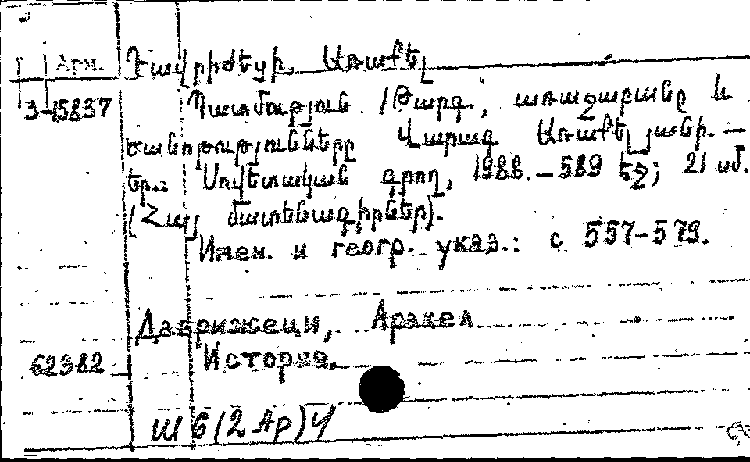 Арм. Դավրիժեցի, Առաքել
3-15837 Պատմություն /Թարգ., առաջաբանը և
ծանոթությունները Վարագ Առաքելյանի. —
Եր.: Սովետական գրող, 1988. — 589 էջ; 21 սմ.
(Հայ մատենագիրներ).
Имен. и геогр. указ.: с 557-579.
Даврижеци, Аракел
62382 История.
Ш6(2Ар)У